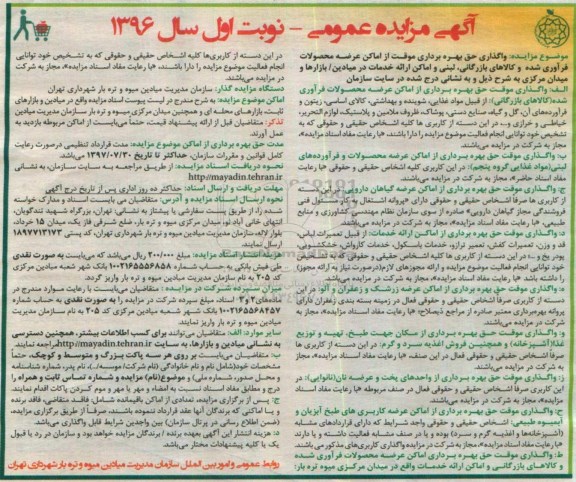 آگهی مزایده عمومی - نوبت اول سال ۱۳۹۶
موضوع مزایده: واگذاری حق بهره برداری موقت از اماکن عرضه محصولات
فرآوری شده و کالاهای بازرگانی، لبنی و اماکن ارائه خدمات در میادین / بازارها و
میدان مرکزی به شرح ذیل و به نشانی درج شده در سایت سازمان
الف: واگذاری موقت حق بهره برداری از اماکن عرضه محصولات فرآوری
شده (کالاهای بازرگانی): از قبیل مواد غذایی، شوینده و بهداشتی، کالای اساسی، زیتون و
فرآورده‌های آن، گل و گیاه، صنایع دستی، پوشاک، ظروف ملامین و پلاستیک، لوازم التحریر،
خیاطی و خرازی و... در این دسته از کاربری ها کلیه اشخاص حقیقی و حقوقی که به
تشخیص خود توانایی انجام فعالیت موضوع مزایده را دارا باشند، «با رعایت مفاد اسناد مزایده»،
مجاز به شرکت در مزایده می‌باشند.
ب: واگذاری موقت حق بهره برداری از اماکن عرضه محصولات و فرآورده‌های
لبنی (مواد غذایی گروه پنجم): در این کاربری کلیه اشخاص حقیقی و حقوقی با رعایت
مفاد اسناد حاضر»، مجاز به شرکت در مزایده می‌باشند.
ج: واگذاری موقت حق بهره برداری از اماکن عرضه گیاهان دارویی: در این دسته
از کاربری ها صرفاً اشخاص حقیقی و حقوقی دارای «پروانه اشتغال به کار مسئول فنی
فروشندگی مجاز گیاهان دارویی» صادره از سوی سازمان نظام مهندسی کشاورزی و منابع
طبیعی، «با رعایت مفاد اسناد مزایده»، مجاز به شرکت در مزایده می‌باشند.
د: واگذاری موقت حق بهره برداری از اماکن ارائه خدمات: از قبیل تعمیرات لباس،
قد و وزن، تعمیرات کفش، تعمیر ترازو، خدمات پاسکول، خدمات کارواش، خشکشویی،
پودر یخ و... در این دسته از کاربری ها کلیه اشخاص حقیقی و حقوقی که به تشخیص
خود توانایی انجام فعالیت موضوع مزایده و ارائه مجوزهای لازم (درصورت نیاز به ارائه مجوز)
را داشته باشند «با رعایت مفاد اسناد مزایده»، مجاز به شرکت در مزایده می‌باشند.
ه: واگذاری موقت حق بهره برداری از اماکن عرضه زرشک و زعفران و آلو: در این
دسته از کاربری صرفاً اشخاص حقیقی و حقوقی فعال در زمینه بسته بندی زعفران دارای
پروانه بهره‌برداری معتبر صادره از مراجع ذیصلاح؛ «با رعایت مفاد اسناد مزایده»، مجاز به
شرکت در مزایده می‌باشند.
و: واگذاری موقت حق بهره برداری از مکان جهت طبخ، تهیه و توزیع
غذا (آشپزخانه) و همچنین فروش اغذیه سرد و گرم: در این دسته از کاربری ها
صرفاً اشخاص حقیقی و حقوقی فعال در این صنف، «با رعایت مفاد اسناد مزایده»، مجاز
به شرکت در مزایده می‌باشند.
ز: واگذاری موقت حق بهره برداری از واحدهای پخت و عرضه نان (نانوایی): در
این کاربری صرفاً اشخاص حقیقی و حقوقی فعال در صنف مربوطه «با رعایت مفاد اسناد
مزایده»، مجاز به شرکت در مزایده می‌باشند.
ح: واگذاری موقت حق بهره برداری از اماکن عرضه کاربری های طبخ آبزیان و
آبمیوه طبیعی: اشخاص حقیقی و حقوقی واجد شرایط که دارای قراردادهای مشابه
(آشپزخانه‌ها و اغذیه گرم و سرد) بوده و یا در صنف مشابه فعالیت داشته و یا دارند
«با رعایت مفاد اسناد مزایده»، مجاز به شرکت در مزایده واگذاری کاربری‌های مذکور می باشند.
ط: واگذاری موقت حق بهره برداری از اماکن عرضه محصولات فرآوری شده
و کالاهای بازرگانی و اماکن ارائه خدمات واقع در میدان مرکزی میوه و تره بار:
در این دسته از کاربری‌ها کلیه اشخاص حقیقی و حقوقی که به تشخیص خود توانایی
انجام فعالیت موضوع مزایده را دارا باشند، «با رعایت مفاد اسناد مزایده»، مجاز به شرکت
در مزایده می‌باشند.
دستگاه مزایده گذار: سازمان مدیریت میادین میوه و تره بار شهرداری تهران
اماکن موضوع مزایده: به شرح مندرج در لیست پیوست اسناد مزایده واقع در میادین و بازارهای
ثابت، بازارهای محله ای و همچنین میدان مرکزی میوه و تره بار سازمان مدیریت میادین
تذکر: متقاضیان قبل از ارائه پیشنهاد قیمت، حتماً می‌بایست از اماکن مربوطه بازدید به
عمل آورند
مدت حق بهره برداری از اماکن موضوع مزایده: مدت قرارداد تنظیمی درصورت رعایت
کامل قوانین و مقررات سازمان، حداکثر تا تاریخ ۱۳۹۷/۰۷/۳۰ می‌باشد.
نحوه دریافت اسناد مزایده: از طریق مراجعه به سایت سازمان، به نشانی
http://mayadin.tehran.ir
مهلت دریافت و ارسال اسناد: حداکثر ده روز اداری پس از تاریخ درج آگهی
نحوه ارسال اسناد مزایده و آدرس: متقاضیان می بایست اسناد و مدارک خواسته
شده را، از طریق پست سفارشی یا پیشتاز به نشانی: تهران، بزرگراه شهید تندگویان،
انتهای خانی آباد نو، میدان مرکزی میوه و تره بار، ضلع شرقی فاز یک، میدان ۱۵ خرداد،
بلوار لاله، سازمان مدیریت میادین میوه و تره بار شهرداری تهران، کد پستی ۱۸۹۷۷۱۳۱۷۳
ارسال نمایند.
هزینه انتشار اسناد مزایده: مبلغ ۲۰۰/۰۰۰ ریال می‌باشد که می‌بایست به صورت نقدی
طی فیش بانکی به حساب شماره ۱۰۰۲۱۶۵۵۶۸۵۸ بانک شهر شعبه میادین مرکزی
کد ۲۰۵ به نام سازمان مدیریت میادین میوه و تره بار واریز گردد.
میزان سپرده شرکت در مزایده: متقاضیان می‌بایست با رعایت موارد مندرج در
ماده‌های ۲ و ۳ اسناد، مبلغ سپرده شرکت در مزایده را به صورت نقدی به حساب شماره
۱۰۰۲۱۶۵۵۶۸۴۵۷ بانک شهر شعبه میادین مرکزی کد ۲۰۵ به نام سازمان مدیریت
میادین میوه و تره بار واریز نمایند.
سایر موارد: الف: متقاضیان می‌توانند برای کسب اطلاعات بیشتر، همچنین دسترسی
به نشانی میادین و بازارها، به سایت http://mayadin.tehran.ir مراجعه نمایند.
ب: متقاضیان می‌بایست بر روی هر سه پاکت بزرگ و متوسط و کوچک، حتماً
مشخصات خود (شامل نام و نام خانوادگی (نام شرکت/ موسسه/...)، نام پدر، شماره شناسنامه
و محل صدور، شماره ملی) و موضوع (نام) مزایده و شماره تماس ثابت و همراه را
درج و مطابق مفاد اسناد نسبت به امضاء و مهر یا مهر و موم کردن پاکت اقدام نمایند.
ج: پس از برگزاری مزایده، تعدادی از اماکن باقیمانده شامل؛ فاقد متقاضی، فاقد برنده
و یا اماکنی که برندگان آنها عقد قرارداد ننموده باشند، صرفاً از طریق برگزاری مزایده،
(ضمن اطلاع رسانی در پرتال سازمان) بین واجدین شرایط قابل واگذاری می‌باشد.
د: هزینه انتشار این آگهی بعهده برنده / برندگان مزایده خواهد بود و سازمان در رد یا قبول
یک یا کلیه پیشنهادات مختار می‌باشد.
روابط عمومی و امور بین الملل سازمان مدیریت میادین میوه و تره بار شهرداری تهران